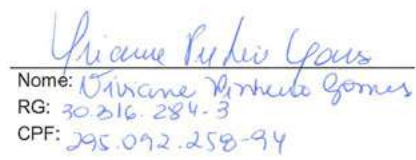 Viviane Pinheiro Gomes
Nome: Viviane Pinheiro Gomes
RG: 30.316.284-3
CPF: 295.092.258-94